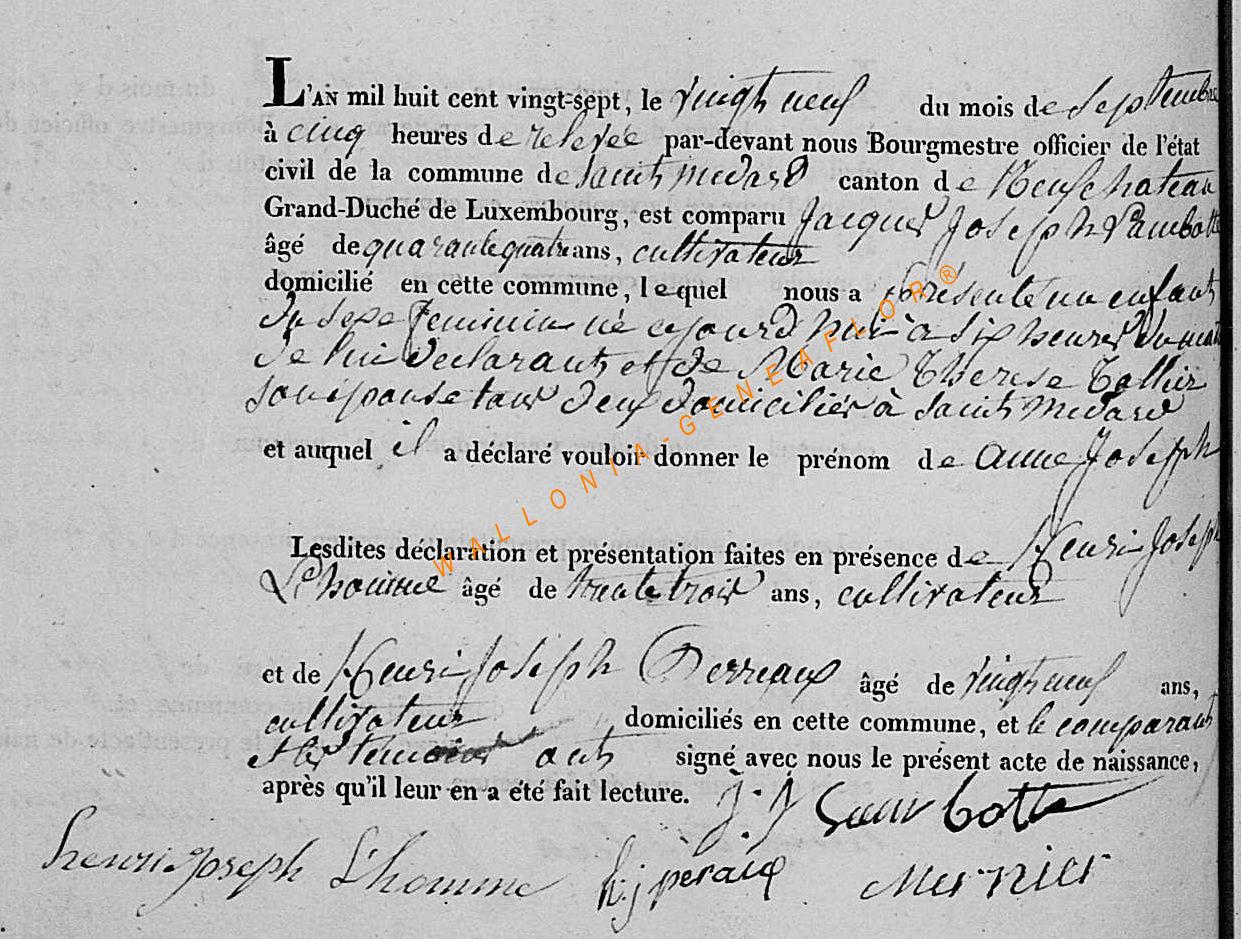 L'AN mil huit cent vingt-sept, le vingt neuf du mois de septembre
à cinq heures de relevée par-devant nous Bourgmestre officier de l'état
civil de la commune de saint medard canton de Neufchateau
Grand-Duché de Luxembourg, est comparu Jacques Joseph Lambotte
âgé de quarante quatre ans, cultivateur
domicilié en cette commune, lequel nous a présenté un enfant
du sexe feminin né ce jourd'hui à six heures du matin
de lui declarant et de Marie Therese Collin
son epouse tous deux domiciliés à saint medard
et auquel il a déclaré vouloir donner le prénom de anne Joseph
Lesdites déclaration et présentation faites en présence de Henri Joseph
Lhomme âgé de trente trois ans, cultivateur
et de Henri Joseph Perreaux âgé de vingt neuf ans,
cultivateur domiciliés en cette commune, et le comparant
et les temoins ont signé avec nous le présent acte de naissance,
après qu'il leur en a été fait lecture. J. J
henri joseph L'homme h j peraux Mernier
WALLONIA-GENEAFLOR®